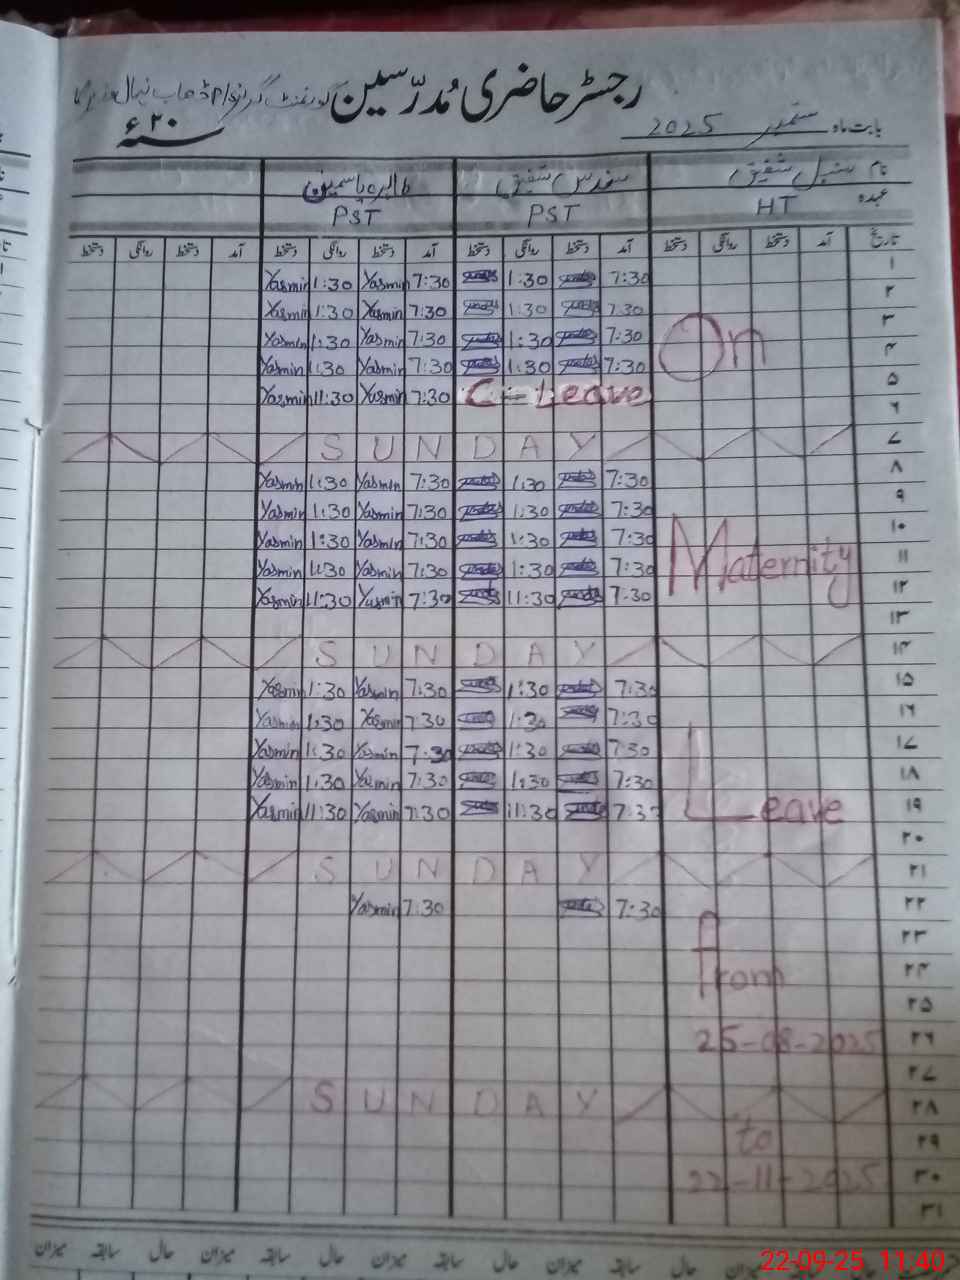 رجسٹر حاضری مُدرّسین
بابت ماہ ستمبر 2025 سنہ ۲۰ء
نام سنبل شفیق سندس شفیق طاہرہ یاسمین
عہدہ HT PST PST
تاریخ آمد دستخط روانگی دستخط آمد دستخط روانگی دستخط آمد دستخط روانگی دستخط آمد دستخط روانگی دستخط
۱ 7:30 1:30 7:30 Yasmin 1:30 Yasmin
۲ 7:30 1:30 7:30 Yasmin 1:30 Yasmin
۳ On 7:30 1:30 7:30 Yasmin 1:30 Yasmin
۴ 7:30 1:30 7:30 Yasmin 1:30 Yasmin
۵ C-Leave 7:30 Yasmin 11:30 Yasmin
۶
۷ SUNDAY
۸ 7:30 1:30 7:30 Yasmin 1:30 Yasmin
۹ 7:30 1:30 7:30 Yasmin 1:30 Yasmin
۱۰ 7:30 1:30 7:30 Yasmin 1:30 Yasmin
۱۱ Maternity 7:30 1:30 7:30 Yasmin 1:30 Yasmin
۱۲ 7:30 11:30 7:30 Yasmin 11:30 Yasmin
۱۳
۱۴ SUNDAY
۱۵ 7:30 1:30 7:30 Yasmin 1:30 Yasmin
۱۶ 7:30 1:30 7:30 Yasmin 1:30 Yasmin
۱۷ 7:30 1:30 7:30 Yasmin 1:30 Yasmin
۱۸ 7:30 1:30 7:30 Yasmin 1:30 Yasmin
۱۹ Leave 7:30 11:30 7:30 Yasmin 11:30 Yasmin
۲۰
۲۱ SUNDAY
۲۲ 7:30 7:30 Yasmin
۲۳
۲۴ from
۲۵
۲۶ 25-08-2025
۲۷
۲۸ SUNDAY
۲۹ to
۳۰ 22-11-2025
۳۱
حال سابقہ میزان حال سابقہ میزان حال سابقہ میزان حال سابقہ میزان
22-09-25 11:40